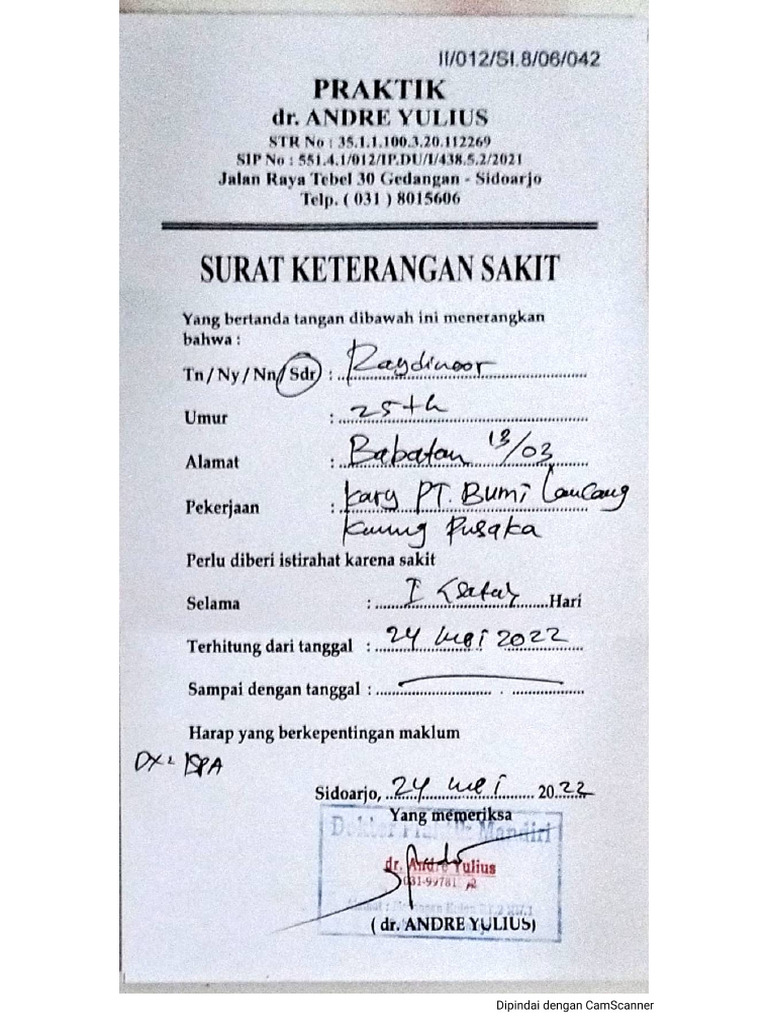 II/012/SI.8/06/042
PRAKTIK
dr. ANDRE YULIUS
STR No : 35.1.1.100.3.20.112269
SIP No : 551.4.1/012/IP.DU/I/438.5.2/2021
Jalan Raya Tebel 30 Gedangan - Sidoarjo
Telp. ( 031 ) 8015606
SURAT KETERANGAN SAKIT
Yang bertanda tangan dibawah ini menerangkan
bahwa :
Tn / Ny / Nn / Sdr : Raydinoor
Umur : 25 th
Alamat : Babatan 13/03
Pekerjaan : kary PT. Bumi Lancang
Kuning Pusaka
Perlu diberi istirahat karena sakit
Selama : I (satu) Hari
Terhitung dari tanggal : 24 Mei 2022
Sampai dengan tanggal :
Harap yang berkepentingan maklum
DX : ISPA
Sidoarjo, 24 Mei 2022
Yang memeriksa
Dokter Praktik Mandiri
dr. Andre Yulius
( dr. ANDRE YULIUS)
Dipindai dengan CamScanner